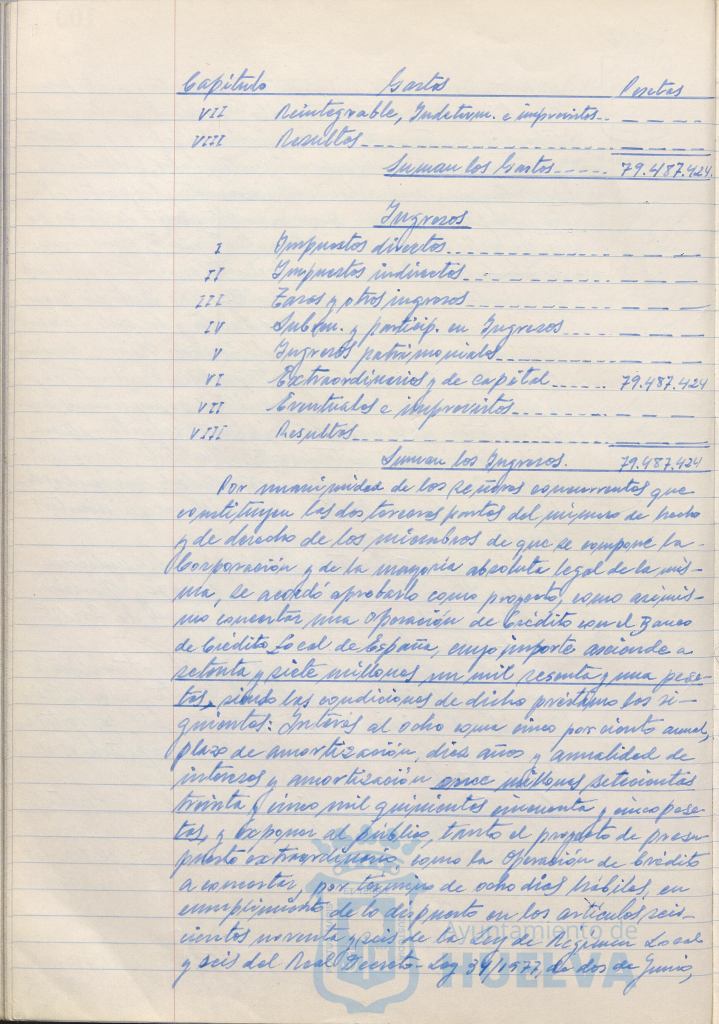 Capítulo Gastos Pesetas
VII Reintegrable, Indeterm. e imprevistos..
VIII Resultas
Suman los Gastos 79.487.424
Ingresos
I Impuestos directos
II Impuestos indirectos
III Tasas y otros ingresos
IV Subv. y particip. en Ingresos
V Ingresos patrimoniales
VI Extraordinarios y de capital 79.487.424
VII Eventuales e imprevistos
VIII Resultas
Suman los Ingresos. 79.487.424
Por unanimidad de los señores concurrentes que
constituyen las dos terceras partes del número de hecho
y de derecho de los miembros de que se compone la
Corporación y de la mayoría absoluta legal de la mis-
ma, se acordó aprobarlo como proyecto, como asimis-
mo concertar una operación de Crédito con el Banco
de Crédito Local de España, cuyo importe asciende a
setenta y siete millones, un mil sesenta y una pese-
tas, siendo las condiciones de dicho préstamo las si-
guientes: Interés al ocho coma cinco por ciento anual,
plazo de amortización, diez años y anualidad de
intereses y amortización once millones setecientas
treinta y cinco mil quinientas cincuenta y cinco pese-
tas, y exponer al público, tanto el proyecto de presu-
puesto extraordinario, como la Operación de Crédito
a concertar, por término de ocho días hábiles, en
cumplimiento de lo dispuesto en los artículos seis-
cientos noventa y seis de la Ley de Régimen Local
y seis del Real Decreto-Ley 34/1977, de dos de Junio,
Ayuntamiento de
HUELVA